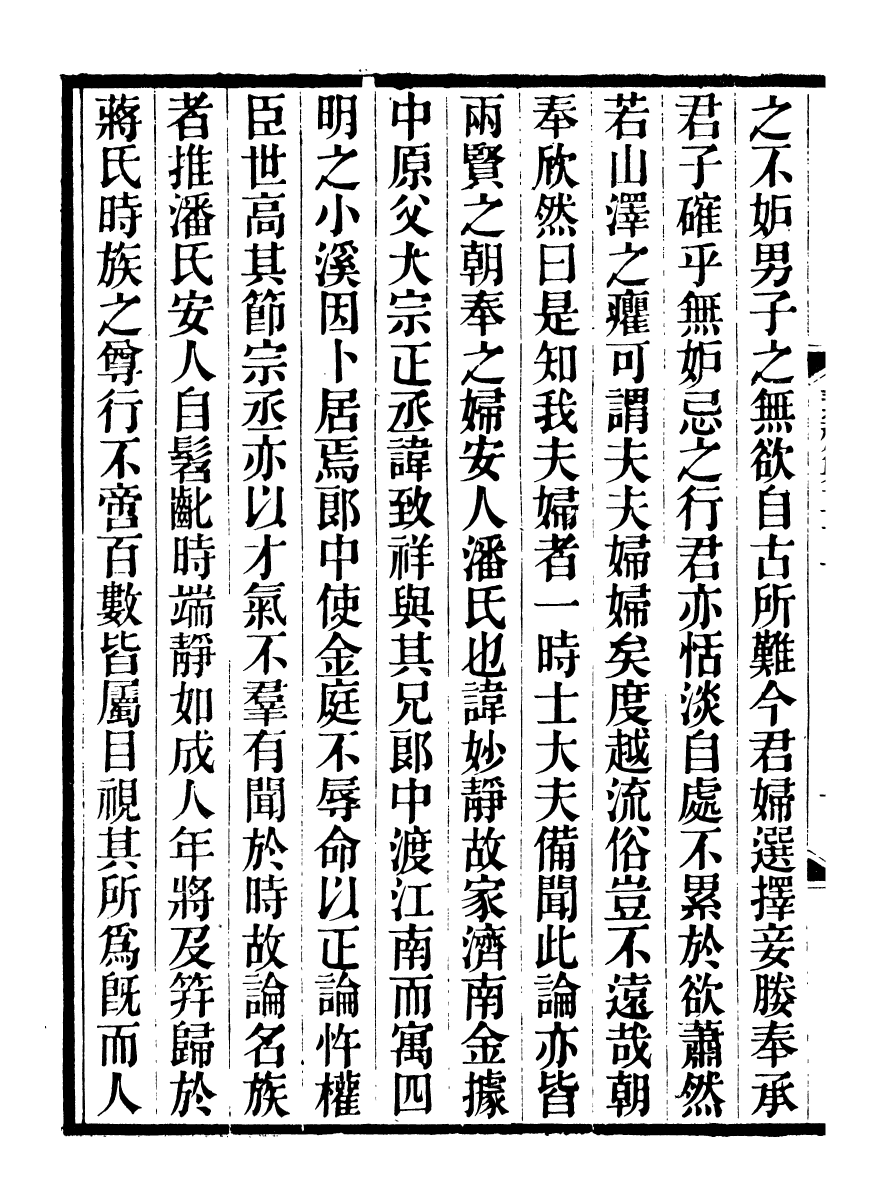 之不妒男子之無欲自古所難今君婦選擇妾媵奉承
君子確乎無妒忌之行君亦恬淡自處不累於欲蕭然
若山澤之癯可謂夫夫婦婦矣度越流俗豈不遠哉朝
奉欣然曰是知我夫婦者一時士大夫備聞此論亦皆
兩賢之朝奉之婦安人潘氏也諱妙靜故家濟南金據
中原父大宗正丞諱致祥與其兄郎中渡江南而寓四
明之小溪因卜居焉郎中使金庭不辱命以正論忤權
臣世高其節宗丞亦以才氣不羣有聞於時故論名族
者推潘氏安人自髫齔時端靜如成人年將及笄歸於
蔣氏時族之尊行不啻百數皆屬目視其所爲旣而人